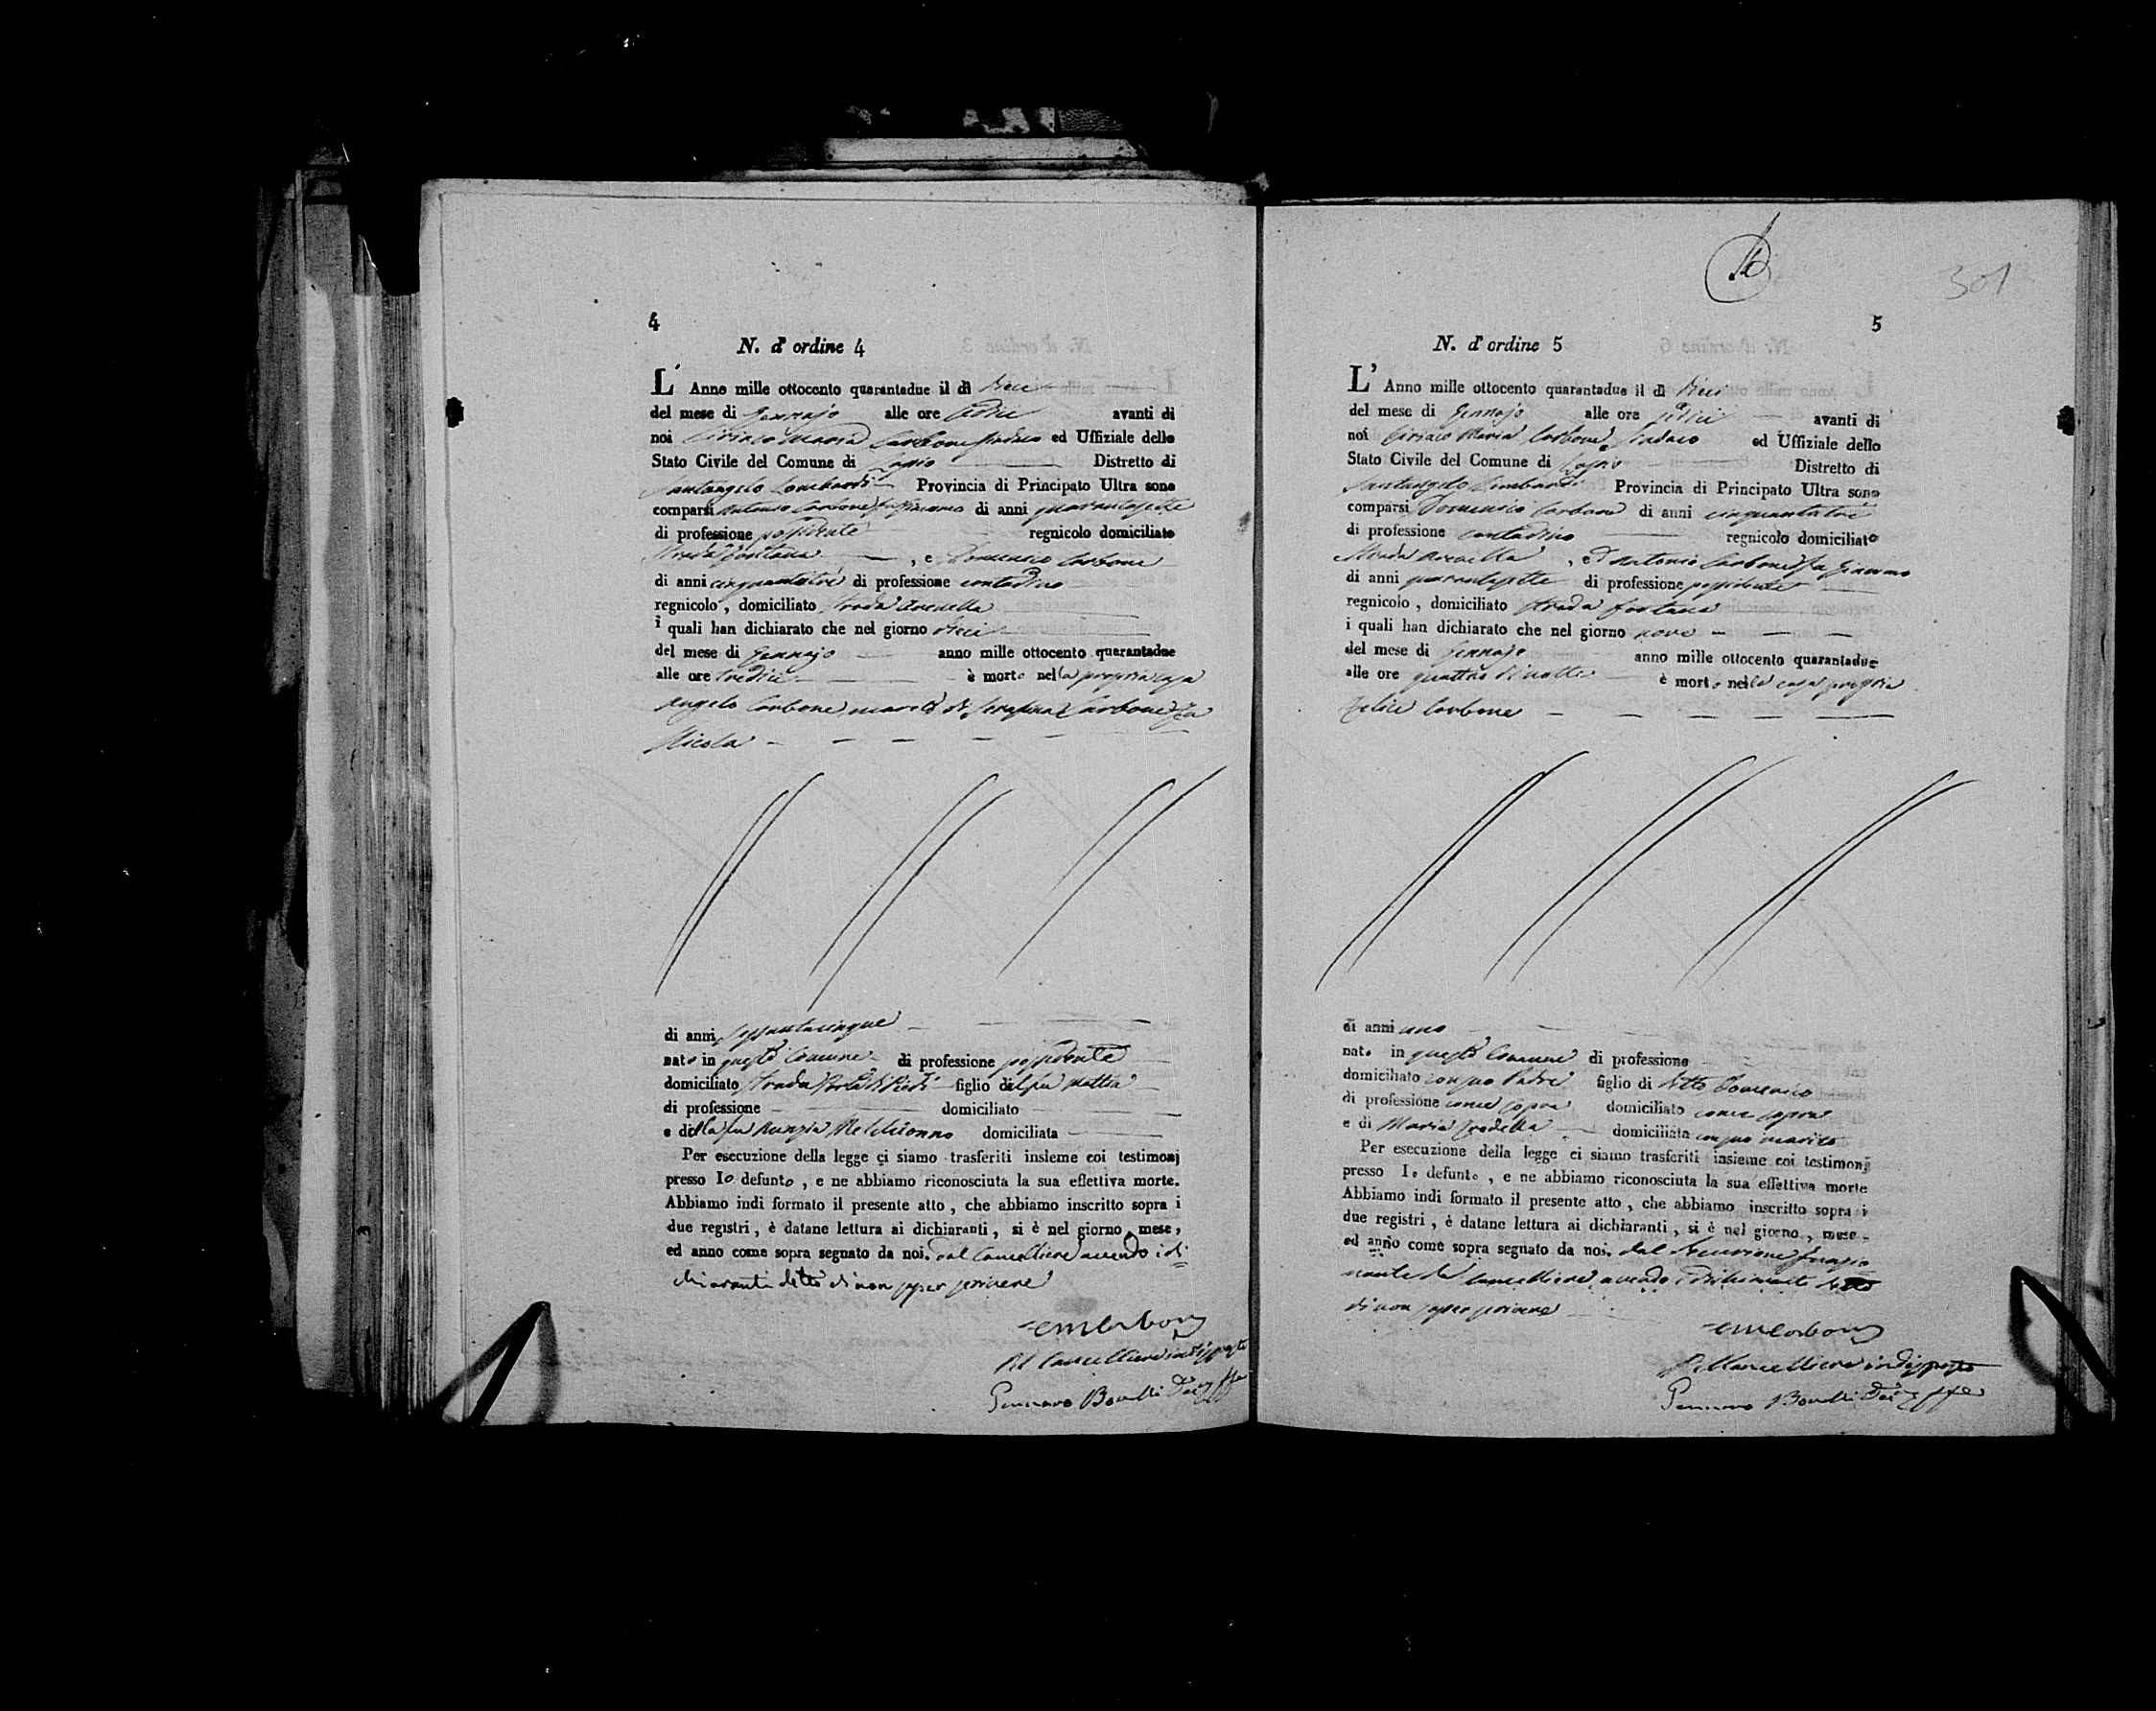 4
N. d'ordine 4
L' Anno mille ottocento quarantadue il dì dieci
del mese di Gennajo alle ore sedici avanti di
noi Ciriaco Maria Carbone Sindaco ed Uffiziale dello
Stato Civile del Comune di Lapio Distretto di
Santangelo Lombardi Provincia di Principato Ultra sono
comparsi Antonio Carbone fu Giacomo di anni quarantasette
di professione possidente regnicolo domiciliato
Strada fontana , e Domenico Carbone
di anni cinquantatre di professione contadino
regnicolo , domiciliato strada Arenella
i quali han dichiarato che nel giorno dieci
del mese di Gennajo anno mille ottocento quarantadue
alle ore tredici è morto nella propria casa
Angelo Carbone marito di Serafina Carbone fu
Nicola
di anni sessantacinque
nato in questo Comune di professione possidente
domiciliato strada figlio del fu Mattia
di professione domiciliato
e di della fu Nunzia Melchionno domiciliata
Per esecuzione della legge ci siamo trasferiti insieme coi testimonj
presso lo defunto , e ne abbiamo riconosciuta la sua effettiva morte.
Abbiamo indi formato il presente atto , che abbiamo inscritto sopra i
due registri , è datane lettura ai dichiaranti , si è nel giorno , mese ,
ed anno come sopra segnato da noi. dal Cancelliere avendo i di=
chiaranti detto di non saper scrivere
CMCarbone
Pel Cancelliere indisposto
Gennaro
301
5
N. d'ordine 5
L' Anno mille ottocento quarantadue il dì dieci
del mese di Gennajo alle ore sedici avanti di
noi Ciriaco Maria Carbone Sindaco ed Uffiziale dello
Stato Civile del Comune di Lapio Distretto di
Santangelo Lombardi Provincia di Principato Ultra sono
comparsi Domenico Carbone di anni cinquantatre
di professione contadino regnicolo domiciliato
Strada Arenella , ed Antonio Carbone fu Giacomo
di anni quarantasette di professione possidente
regnicolo , domiciliato strada fontana
i quali han dichiarato che nel giorno nove
del mese di Gennajo anno mille ottocento quarantadue
alle ore quattro di notte è morto nella casa propria
Felice Carbone
di anni uno
nato in questo Comune di professione
domiciliato con suo Padre figlio di detto Domenico
di professione come sopra domiciliato come sopra
e di Maria domiciliata con suo marito
Per esecuzione della legge ci siamo trasferiti insieme coi testimonj
presso lo defunto , e ne abbiamo riconosciuta la sua effettiva morte
Abbiamo indi formato il presente atto , che abbiamo inscritto sopra i
due registri , è datane lettura ai dichiaranti , si è nel giorno , mese ,
ed anno come sopra segnato da noi. dal Decurione funzio
nante da Cancelliere avendo i dichiaranti detto
di non saper scrivere
CMCarbone
Pel Cancelliere indisposto
Gennaro